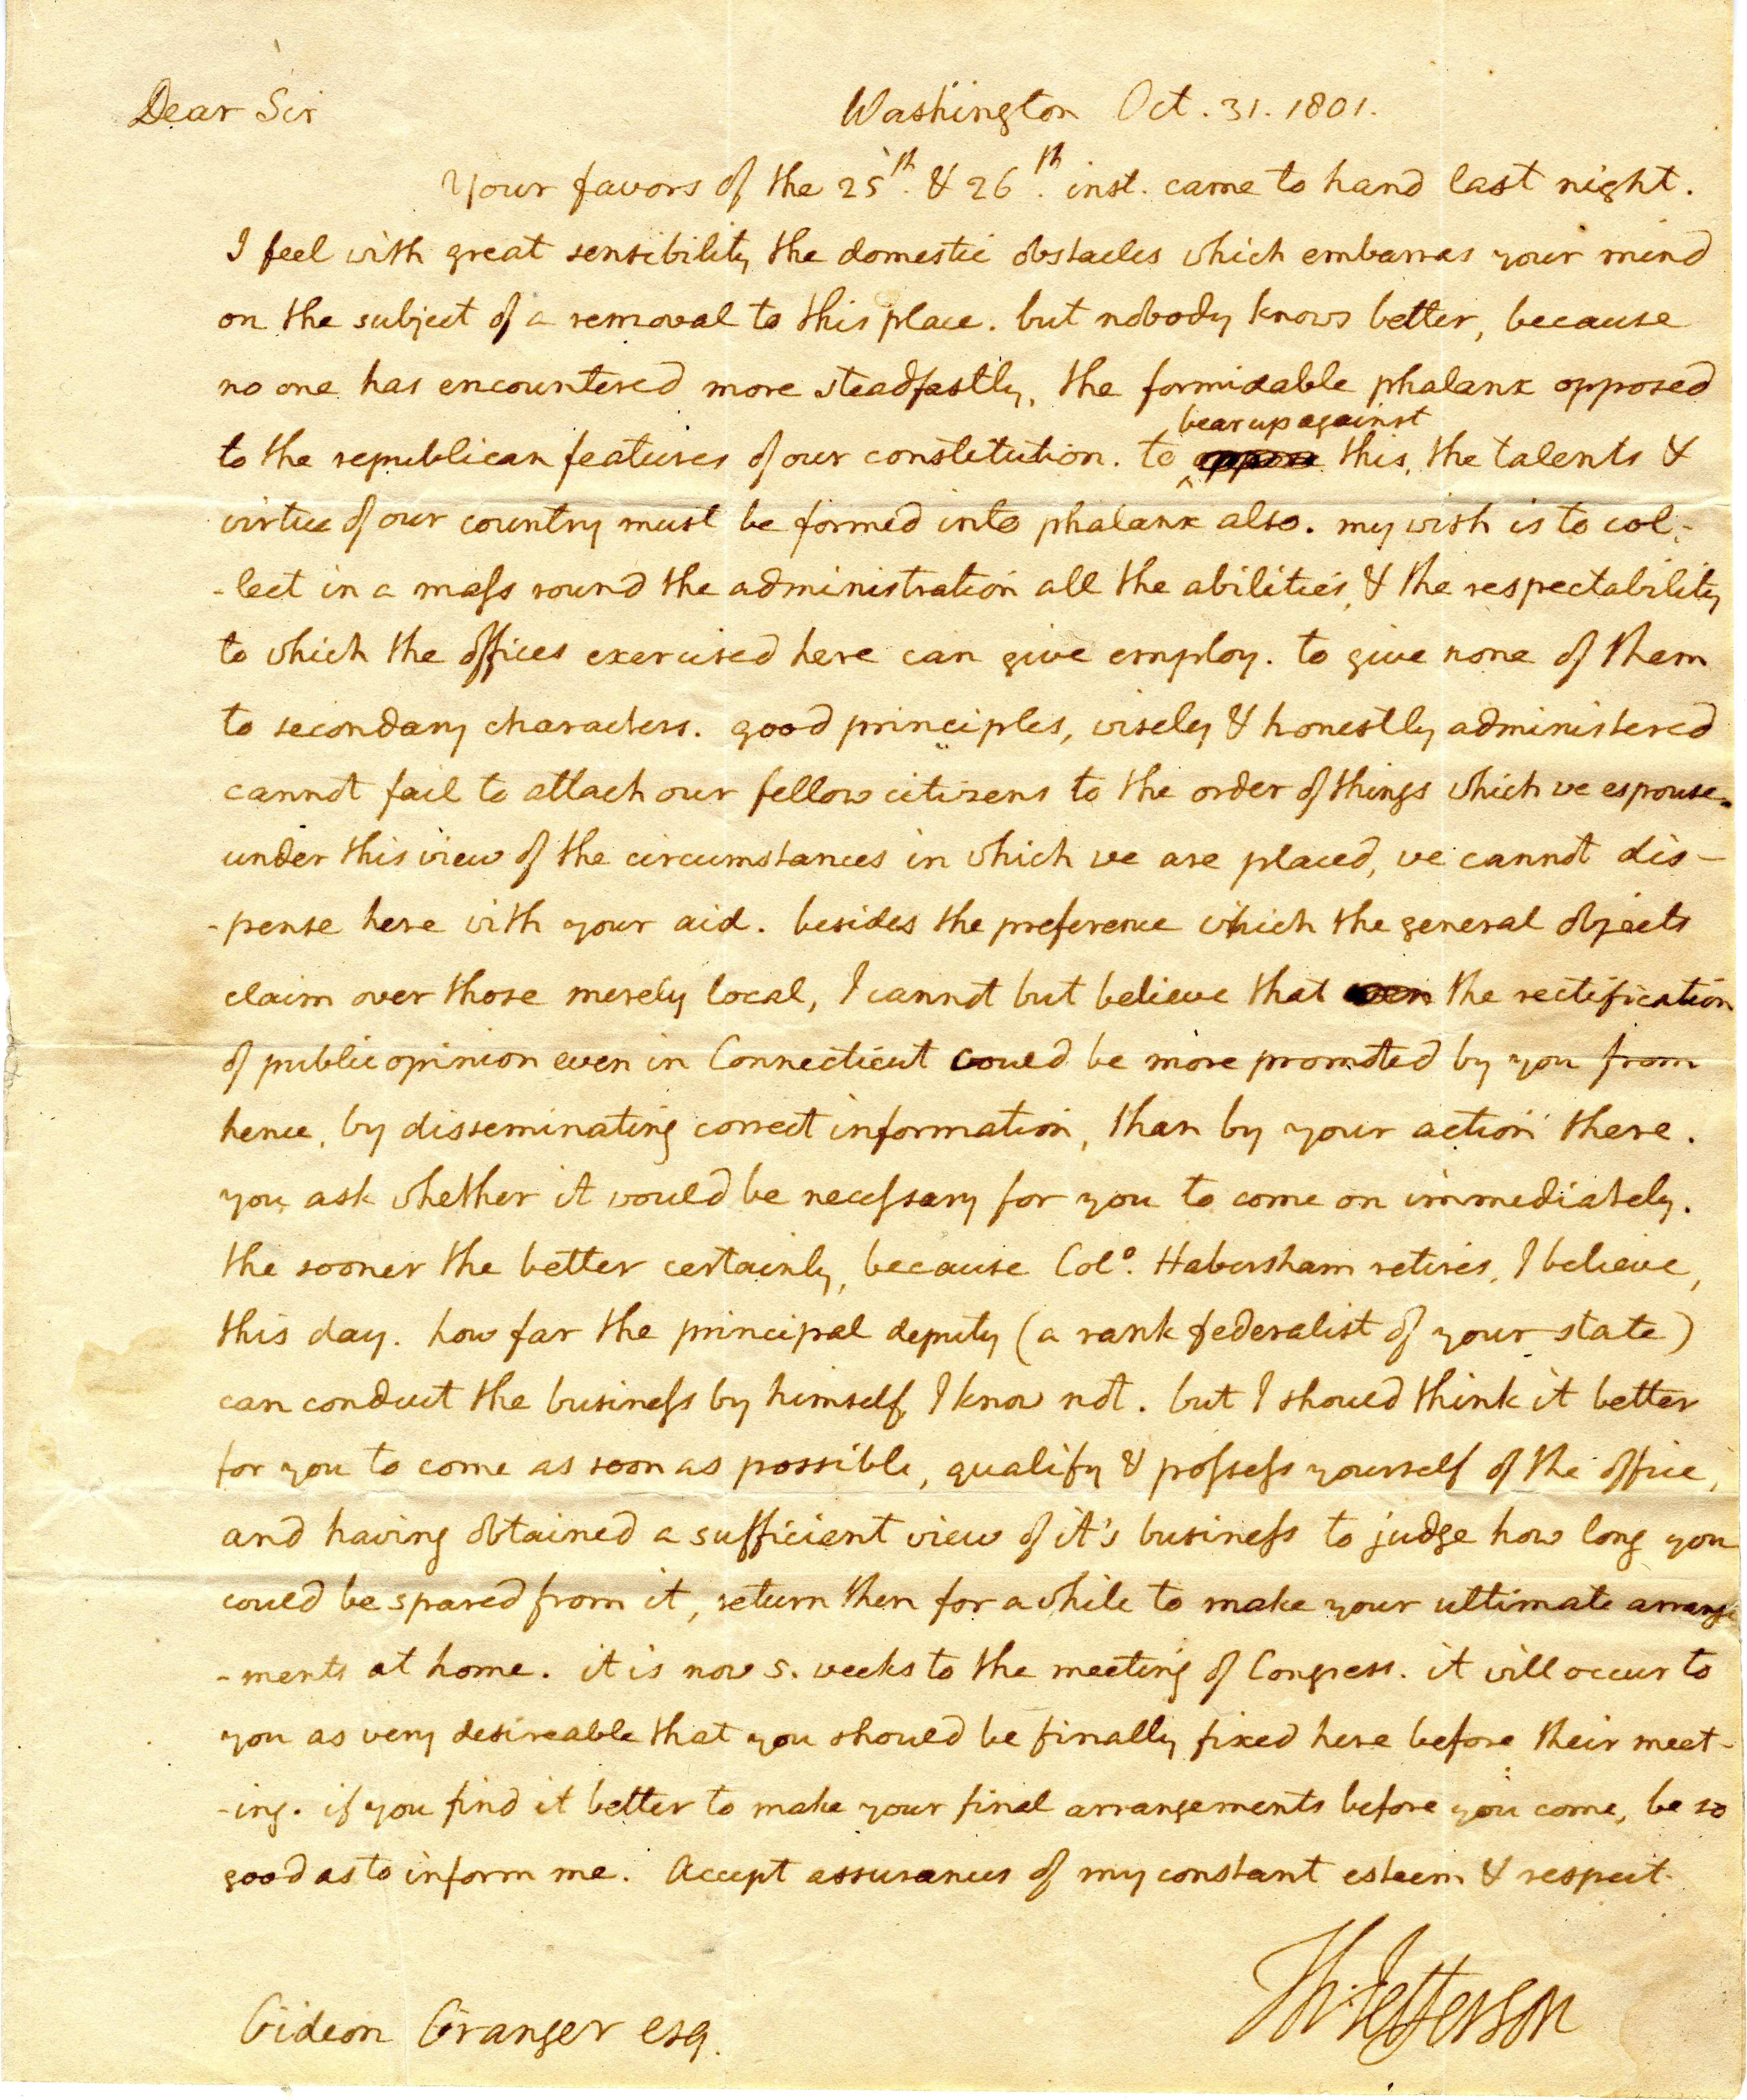 Dear Sir Washington Oct. 31. 1801.
Your favors of the 25th. & 26th. inst. came to hand last night.
I feel with great sensibility the domestic obstacles which embarras your mind
on the subject of a removal to this place. but nobody knows better, because
no one has encountered more steadfastly, the formidable phalanx opposed
bear up against
to the republican features of our constitution. to oppose this, the talents &
virtue of our country must be formed into phalanx also. my wish is to col-
-lect in a mass round the administration all the abilities, & the respectability
to which the offices exercised here can give employ. to give none of them
to secondary characters. good principles, wisely & honestly administered
cannot fail to attach our fellow citizens to the order of things which we espouse.
under this view of the circumstances in which we are placed, we cannot dis-
-pense here with your aid. besides the preference which the general objects
claim over those merely local, I cannot but believe that even the rectification
of public opinion even in Connecticut could be more promoted by you from
hence, by disseminating correct information, than by your action there.
you ask whether it would be necessary for you to come on immediately.
the sooner the better certainly, because Colo. Habersham retires, I believe,
this day. how far the principal deputy (a rank federalist of your state)
can conduct the business by himself, I know not. but I should think it better
for you to come as soon as possible, qualify & possess yourself of the office,
and having obtained a sufficient view of it's business to judge how long you
could be spared from it, return then for a while to make your ultimate arrange
-ments at home. it is now 5. weeks to the meeting of Congress. it will occur to
you as very desireable that you should be finally fixed here before their meet-
-ing. if you find it better to make your final arrangements before you come, be so
good as to inform me. Accept assurances of my constant esteem & respect.
Th: Jefferson
Gideon Granger esq.